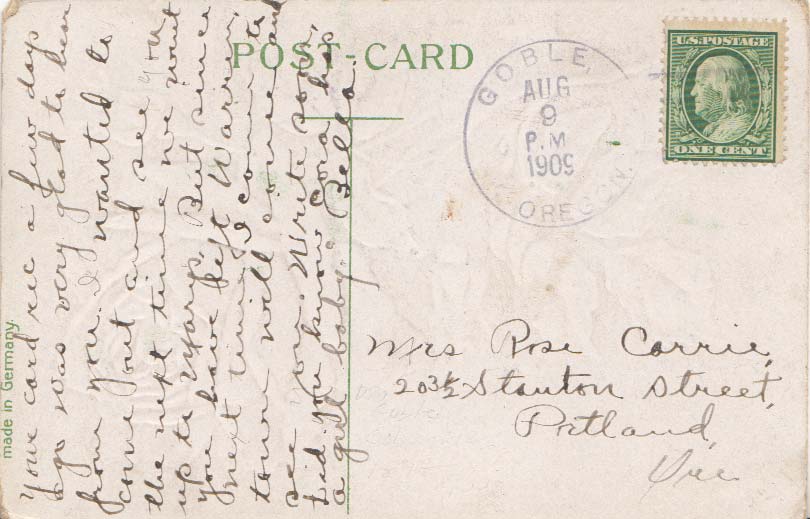 POST-CARD
GOBLE,
AUG
9
P.M
1909
OREGON.
U.S. POSTAGE
ONE CENT
made in Germany.
Your card rec a few days
ago was very glad to hear
from you. I wanted to
come out and see you
the next time we went
up to Marys. But since
you have left Warren,
next time I come to
town will come and
see you. Write soon.
Did you know Cora has
a girl baby. Bella.
Mrs Rose Carrie,
203½ Stanton Street,
Portland,
Ore